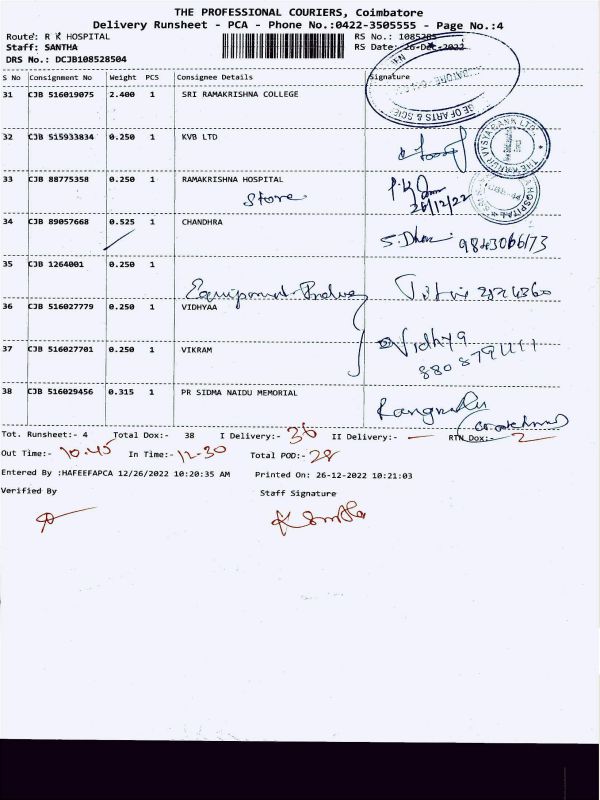 THE PROFESSIONAL COURIERS, Coimbatore
Delivery Runsheet - PCA - Phone No.:0422-3505555 - Page No.:4
Route: R K HOSPITAL
RS No.: 1085285
Staff: SANTHA
RS Date: 26-Dec-2022
DRS No.: DCJB108528504
S No Consignment No Weight PCS Consignee Details Signature
31 CJB 516019075 2.400 1 SRI RAMAKRISHNA COLLEGE
GE OF ARTS & SCIE
32 CJB 515933834 0.250 1 KVB LTD
THE KARUR VYSYA BANK LTD.
33 CJB 88775358 0.250 1 RAMAKRISHNA HOSPITAL
Store
26/12/22
HOSPITAL
34 CJB 89057668 0.525 1 CHANDHRA
S. 9843066173
35 CJB 1264001 0.250 1
36 CJB 516027779 0.250 1 VIDHYAA
Vidhya
37 CJB 516027701 0.250 1 VIKRAM
38 CJB 516029456 0.315 1 PR SIDMA NAIDU MEMORIAL
Tot. Runsheet:- 4 Total Dox:- 38 I Delivery:- 36 II Delivery:- — RTN Dox:- 2
Out Time:- 10.45 In Time:- 12-30 Total POD:- 28
Entered By :HAFEEFAPCA 12/26/2022 10:20:35 AM Printed On: 26-12-2022 10:21:03
Verified By Staff Signature